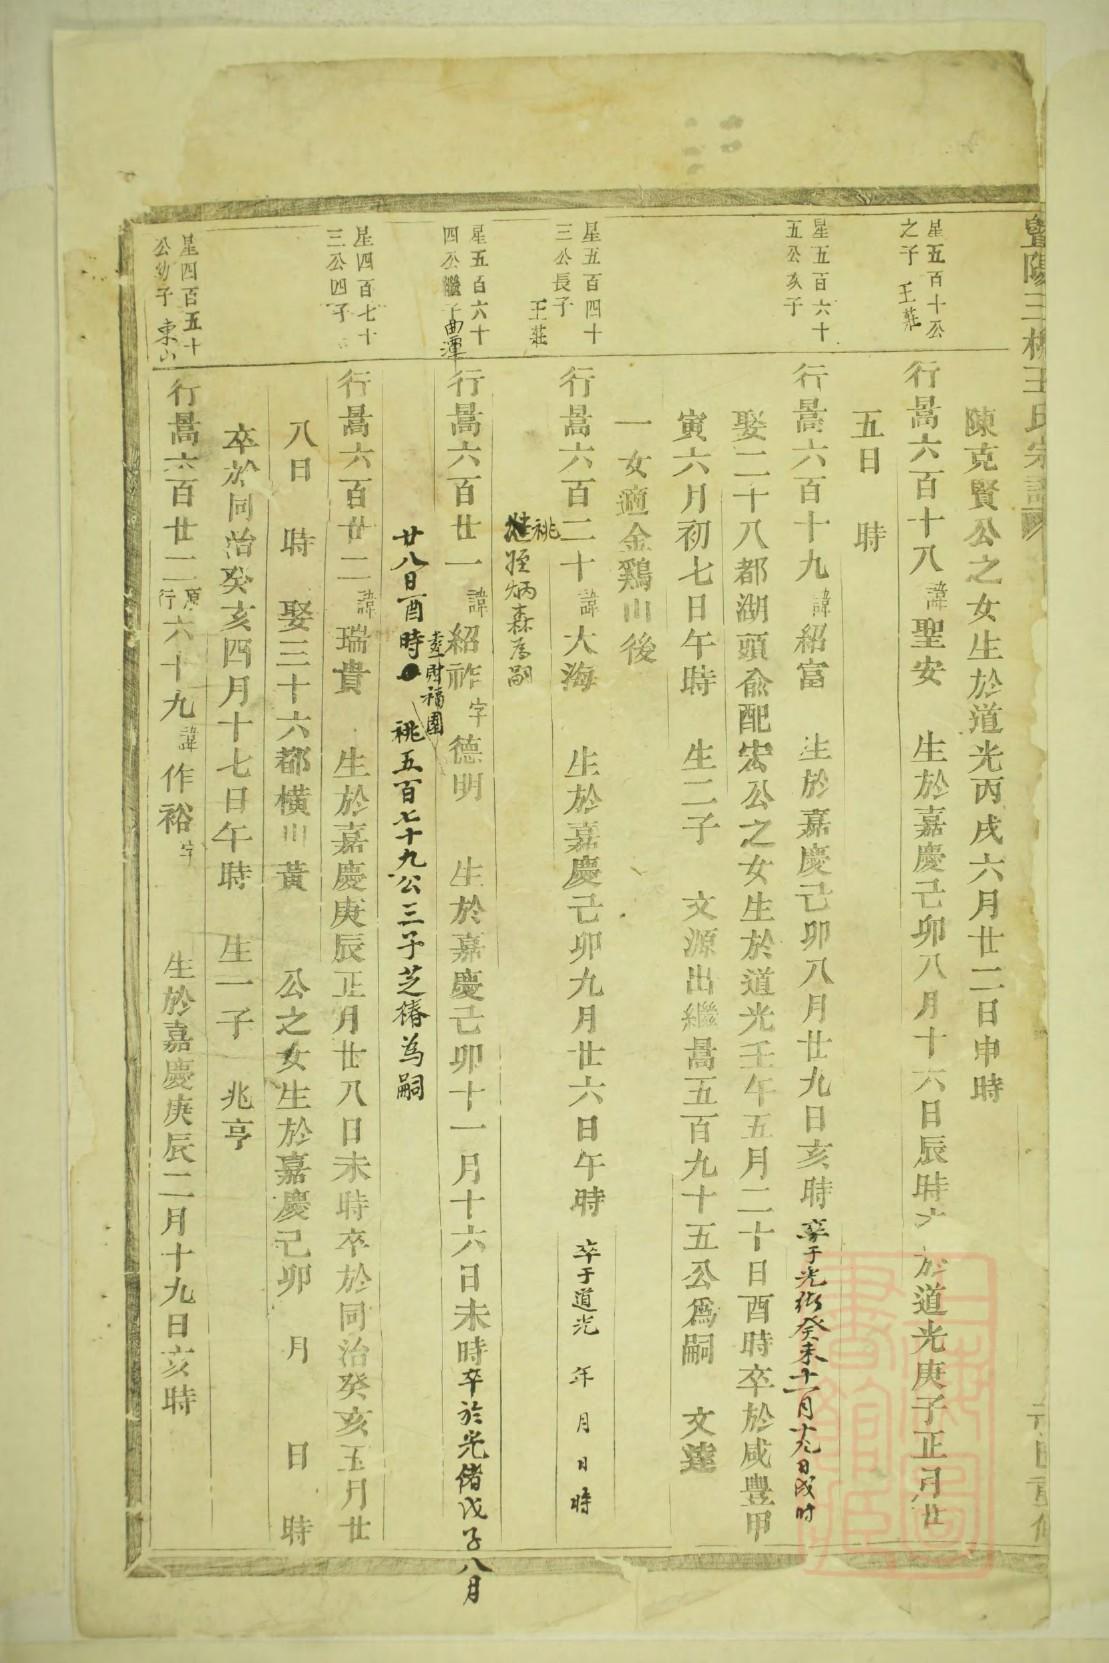 暨陽三槐王氏宗譜
陳克賢公之女生於道光丙戌六月廿二日申時
星五百十公
之子 王莊
行暠六百十八諱聖安 生於嘉慶己卯八月十六日辰時卒於道光庚子正月廿
五日 時
星五百六十
五公次子
行暠六百十九諱紹富 生於嘉慶己卯八月廿九日亥時卒于光緒癸未十一月十九日戌时
娶二十八都湖頭俞配宏公之女生於道光壬午五月二十日酉時卒於咸豐甲
寅六月初七日午時 生二子 文源出繼暠五百九十五公爲嗣 文達
一女適金雞山後
星五百四十
三公長子
王莊
行暠六百二十諱大海 生於嘉慶己卯九月廿六日午時 卒于道光 年 月 日 時
祧
姪炳森為嗣
星五百六十
四公繼子曲潭
行暠六百廿一諱紹祚字德明 生於嘉慶己卯十一月十六日未時卒於光緒戊子八月
廿八日酉時 祧五百七十九公三子芝椿為嗣
財福園
星四百七十
三公四子
行暠六百廿二諱瑞貴 生於嘉慶庚辰正月廿八日未時卒於同治癸亥五月廿
八日 時 娶三十六都橫山黃 公之女生於嘉慶己卯 月 日 時
卒於同治癸亥四月十七日午時 生一子 兆亨
星四百五十
公幼子 東山
行暠六百廿二原行六十九諱作裕字 生於嘉慶庚辰二月十九日亥時